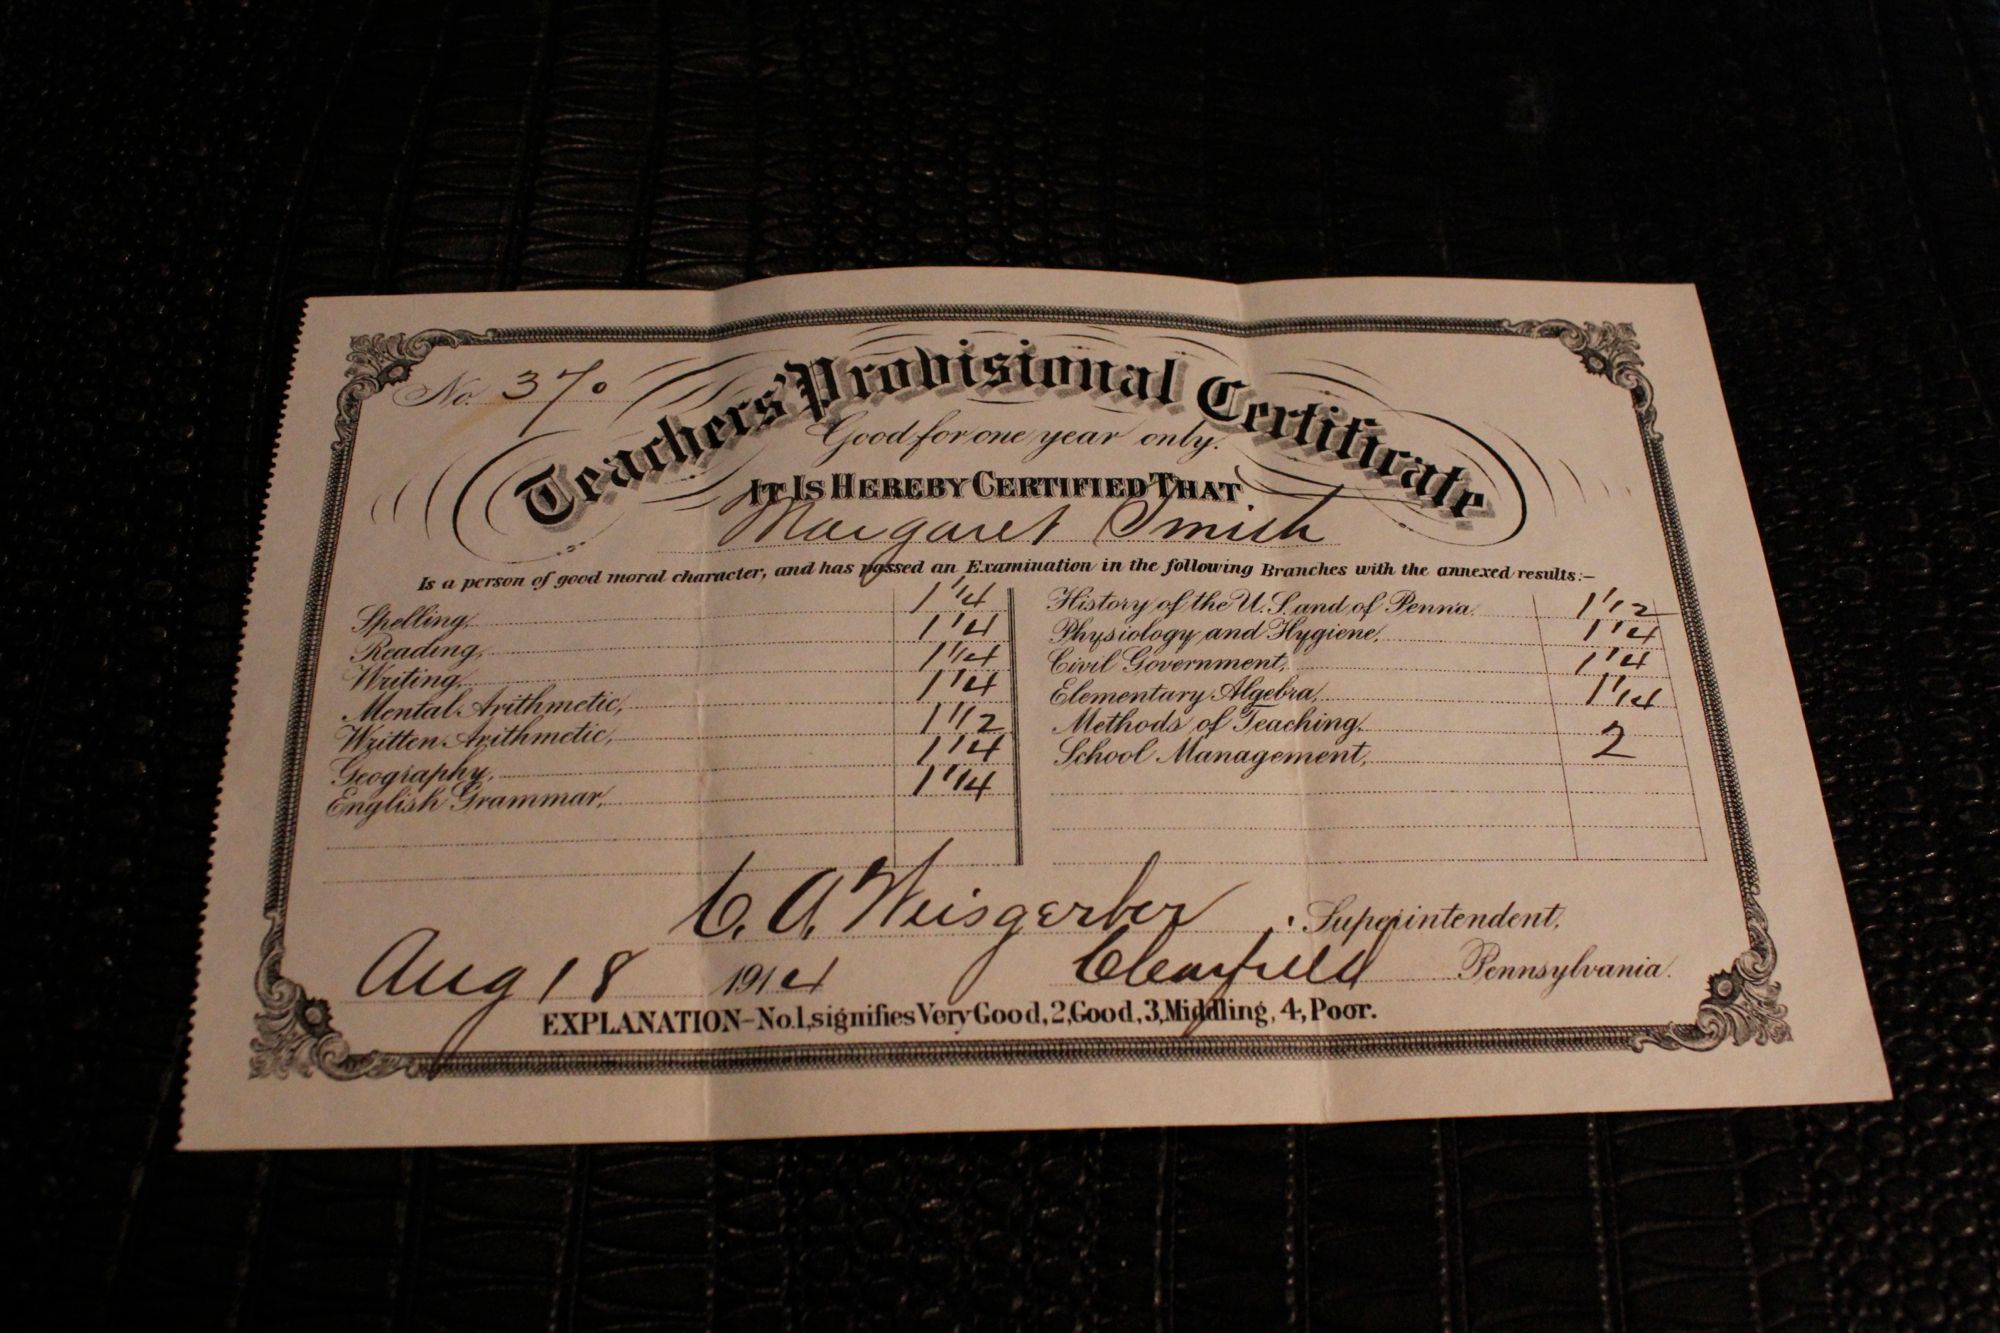 No. 370
Teachers' Provisional Certificate
Good for one year only.
IT IS HEREBY CERTIFIED THAT
Margaret Smith
Is a person of good moral character, and has passed an Examination in the following Branches with the annexed results:—
Spelling, 1 1/4
Reading, 1 1/4
Writing, 1 1/4
Mental Arithmetic, 1 1/4
Written Arithmetic, 1 1/2
Geography, 1 1/4
English Grammar, 1 1/4
History of the U. S. and of Penna. 1 1/2
Physiology and Hygiene, 1 1/4
Civil Government, 1 1/4
Elementary Algebra, 1 1/4
Methods of Teaching,
School Management, 2
C. A. Weisgerber Superintendent,
Aug 18 1914 Clearfield Pennsylvania.
EXPLANATION—No. 1, signifies Very Good, 2, Good, 3, Middling, 4, Poor.